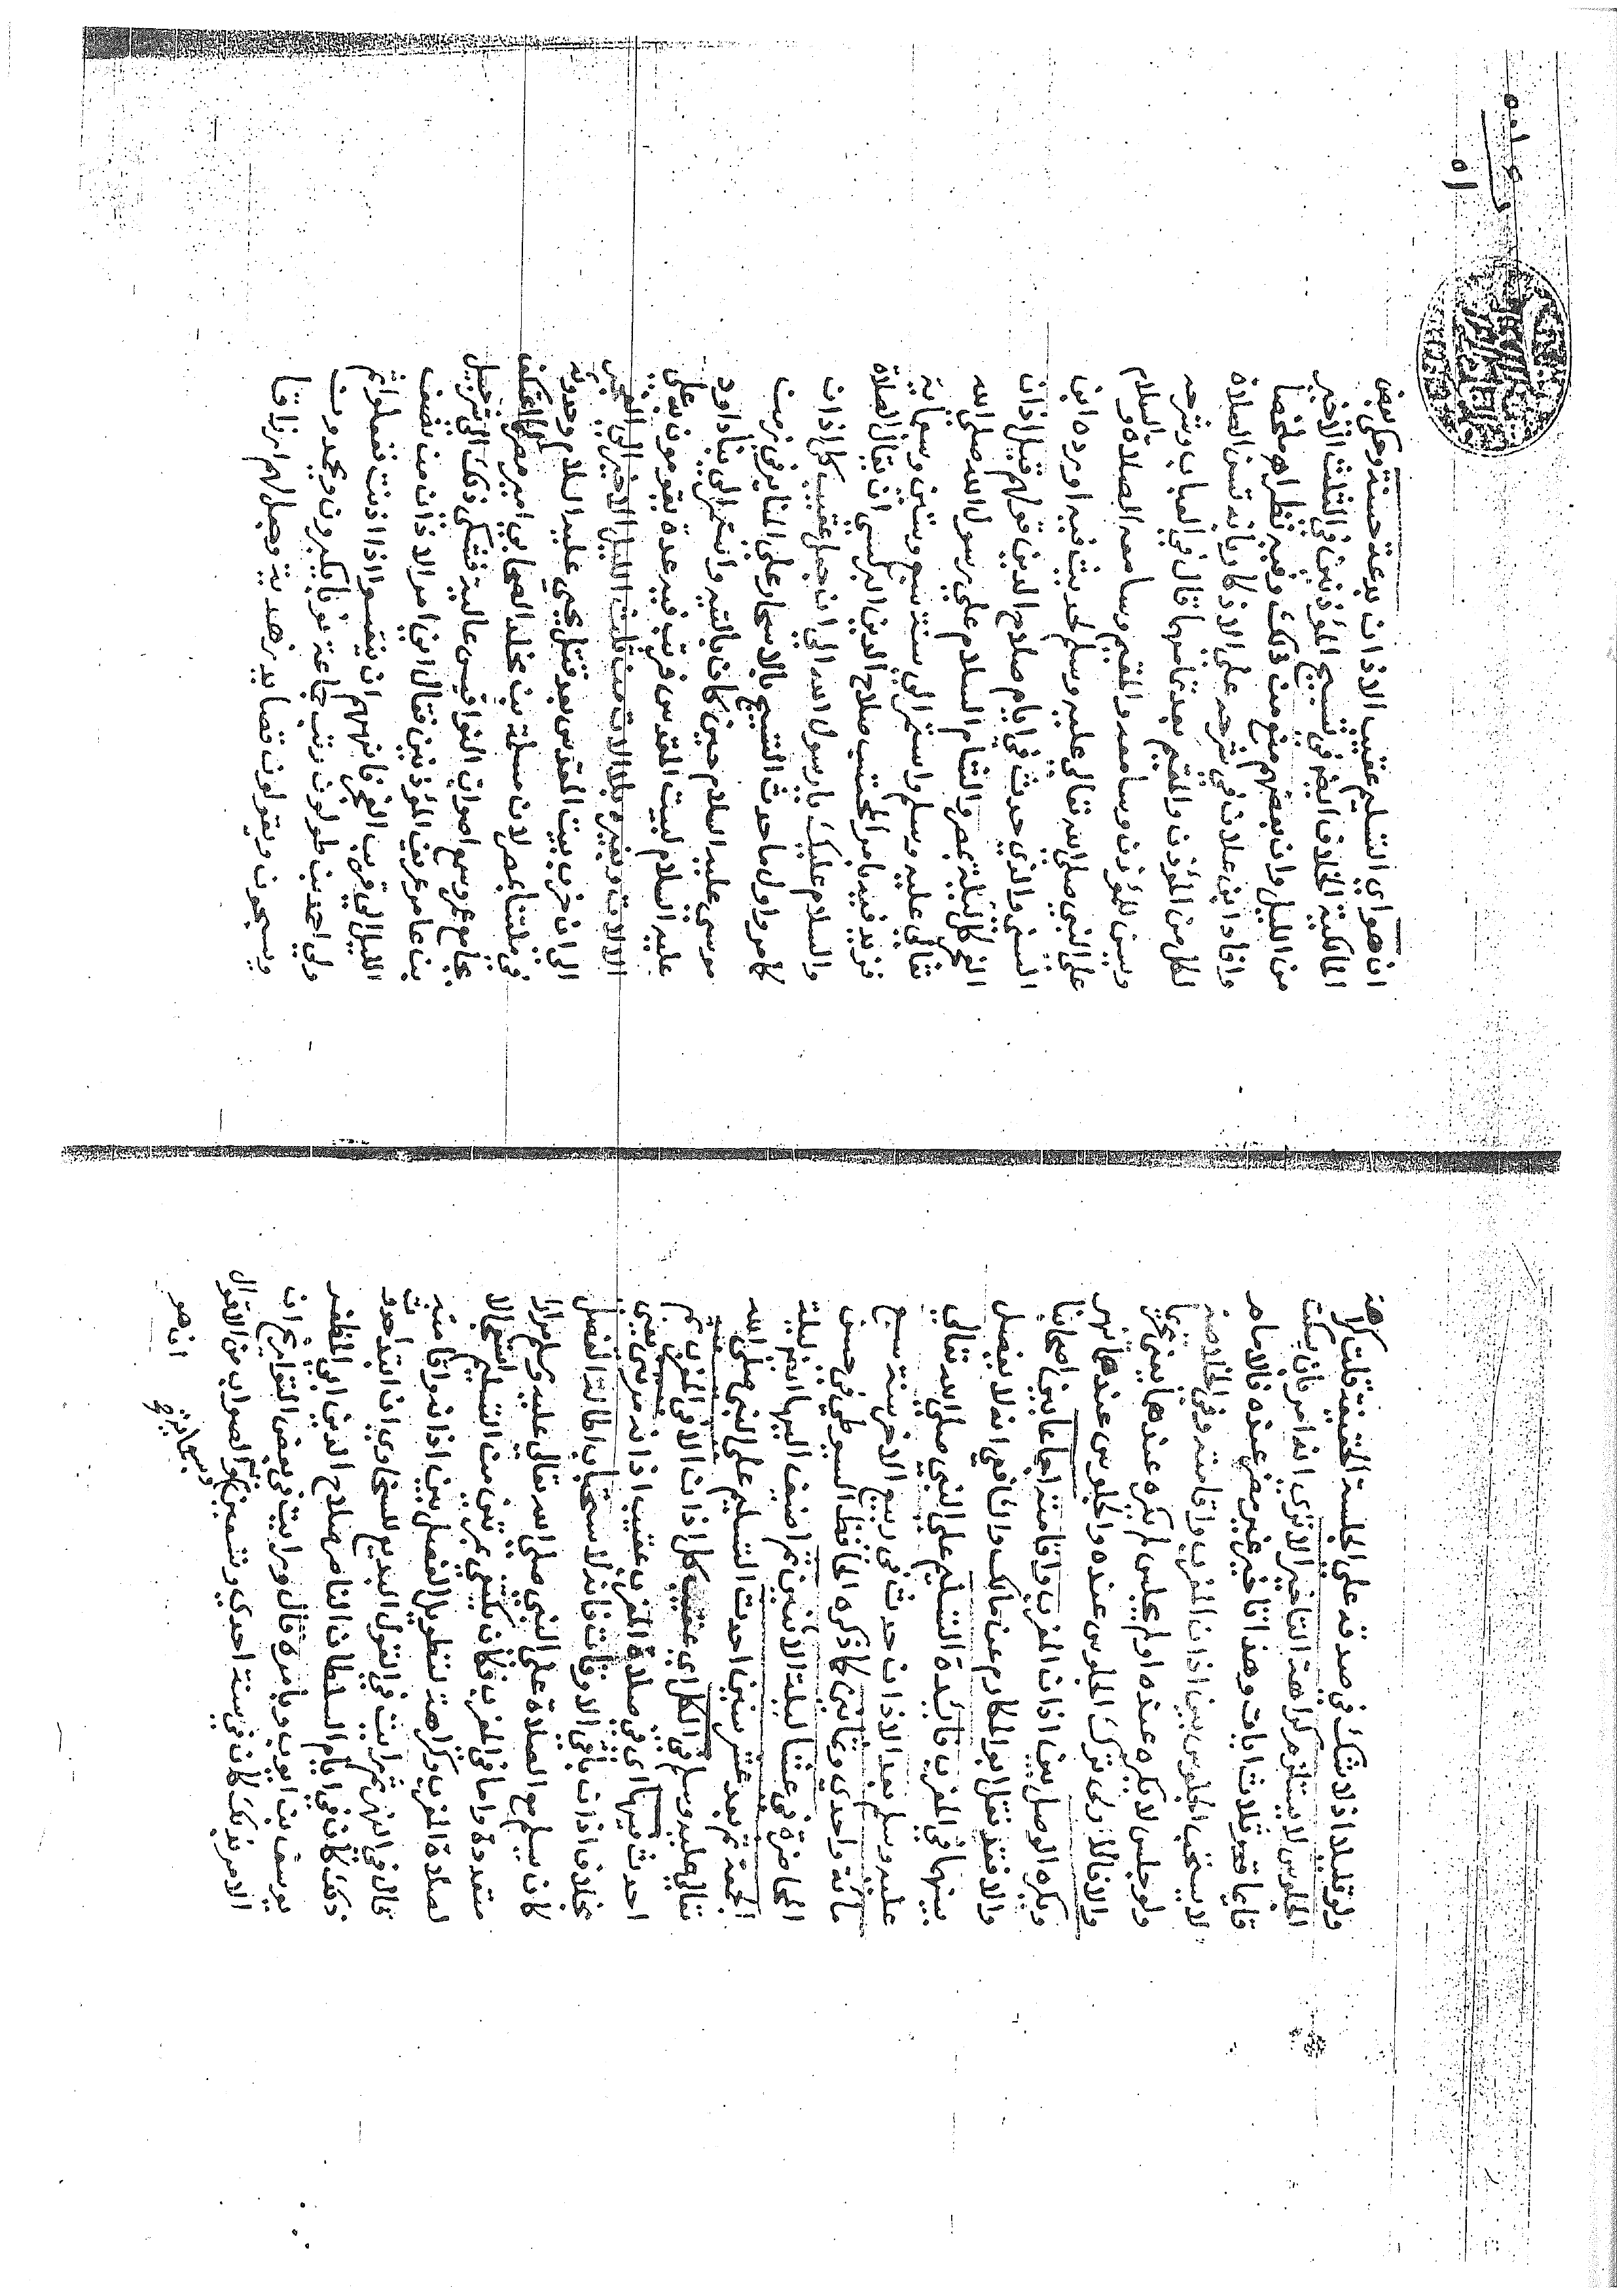 ولو قليلا اذ لا شك في صدقه على الجلسة الخفيفة قلت كراهة
الجلوس لا يستلزم كراهة التاخير الا ترى انه امر بان يسكت
قائما قدر ثلاث ايات وهذا تاخير غير مرضي عنده فالامام
لا يستحب الجلوس بين اذان المغرب واقامته وفي الخلاصة
ولو جلس لا يكره عنده ولو لم يجلس لم يكره عندهما يعني تحريما
والا فالاولى ترك الجلوس عنده والجلوس عندهما نهر
ويكره الوصل بين اذان المغرب واقامته اجماعا بين اصحابنا
والا فقد نقل ابو المكارم عن مالك والشافعي انه لا يفصل
بينهما في المغرب فائدة التسليم على النبي صلى الله تعالى
عليه وسلم بعد الاذان حدث في ربيع الاخر سنة سبع
مائة واحدى وثمانين كما ذكره الحافظ السيوطي في حسن
المحاضرة في عشا ليلة الاثنين ثم اضيف اليها ايضا ليلة
الجمعة ثم بعد عشر سنين احدث التسليم على النبي صلى الله
تعالى عليه وسلم في الكل اي عقيب كل اذان الا في المغرب ثم
احدث فيها اي في صلاة المغرب عقيب اذانه مرتين يعني
بخلاف اذان باقي الاوقات فانه لاستحباب اطالة الفصل
كان يسلم مع الصلاة على النبي صلى الله تعالى عليه وسلم مرارا
متعددة واما في المغرب فكان يكتفي بمرتين من التسليم استعجالا
لصلاة المغرب وكراهة لتطويل الفصل بين اذانه واقامته
قال في النهر ثم رايت في القول البديع للسخاوي ان ابتداء حدوث
ذلك كان في ايام السلطان الناصر صلاح الدين ابي المظفر
يوسف بن ايوب وبامره قال ورايت في بعض التواريخ ان
الامر بذلك كان في سنة احدى وتسعين والصواب من الاقوال
وسبعمائة
ان هو
ان هو اي التسليم عقيب الاذان بدعة حسنة وحكى بعض
المالكية الخلاف ايضا في تسبيح المؤذنين في الثلث الاخير
من الليل وان بعضهم منع من ذلك وفيه نظر اهـ ملخصا
وافاد ابن علان في شرحه على الاذكار بانه تسن الصلاة
لكل من المؤذن والمقيم بعد تمامهما قال في العباب وشرحه
ويسن للمؤذن وسامعه والمقيم وسامعه الصلاة والسلام
على النبي صلى الله تعالى عليه وسلم لحديث فيه اورده ابن
السني والذي حدث في ايام صلاح الدين قولهم قبل اذان
الفجر كل ليلة بمصر والشام السلام على رسول الله صلى الله
تعالى عليه وسلم واستمر الى سنة سبع وستين وسبعماية
فزيد فيه بامر المحتسب صلاح الدين البرلسي ان يقال الصلاة
والسلام عليك يا رسول الله الى ان جعل عقيب كل اذان
كما مر واول ما حدث التسبيح بالاسحار على المناير في زمن
موسى عليه السلام حين كان بالتيه واستمر الى بنا داود
عليه السلام لبيت المقدس فرتب فيه عدة يقومون به على
الالات وبغيرها بلا الات من ثلث الليل الاخير الى الفجر
الى ان خرب بيت المقدس بعد قتل يحيى عليه السلام وحدوثه
في ملتنا بمصر لان مسلمة بن مخلد الصحابي امير مصر لما اعتكف
بجامع عمرو سمع اصوات النواقيس عالية فشكى ذلك الى شرحبيل
بن عامر عريف المؤذنين فقال اني امر الاذان من نصف
الليل الى قرب الفجر فانههم ان ينقسوا اذا اذنت ففعلوا ثم
ولي احمد بن طولون رتب جماعة نوبا يكبرون ويحمدون
ويسبحون ويقولون قصايد زهدية وجعل لهم ارزاقا